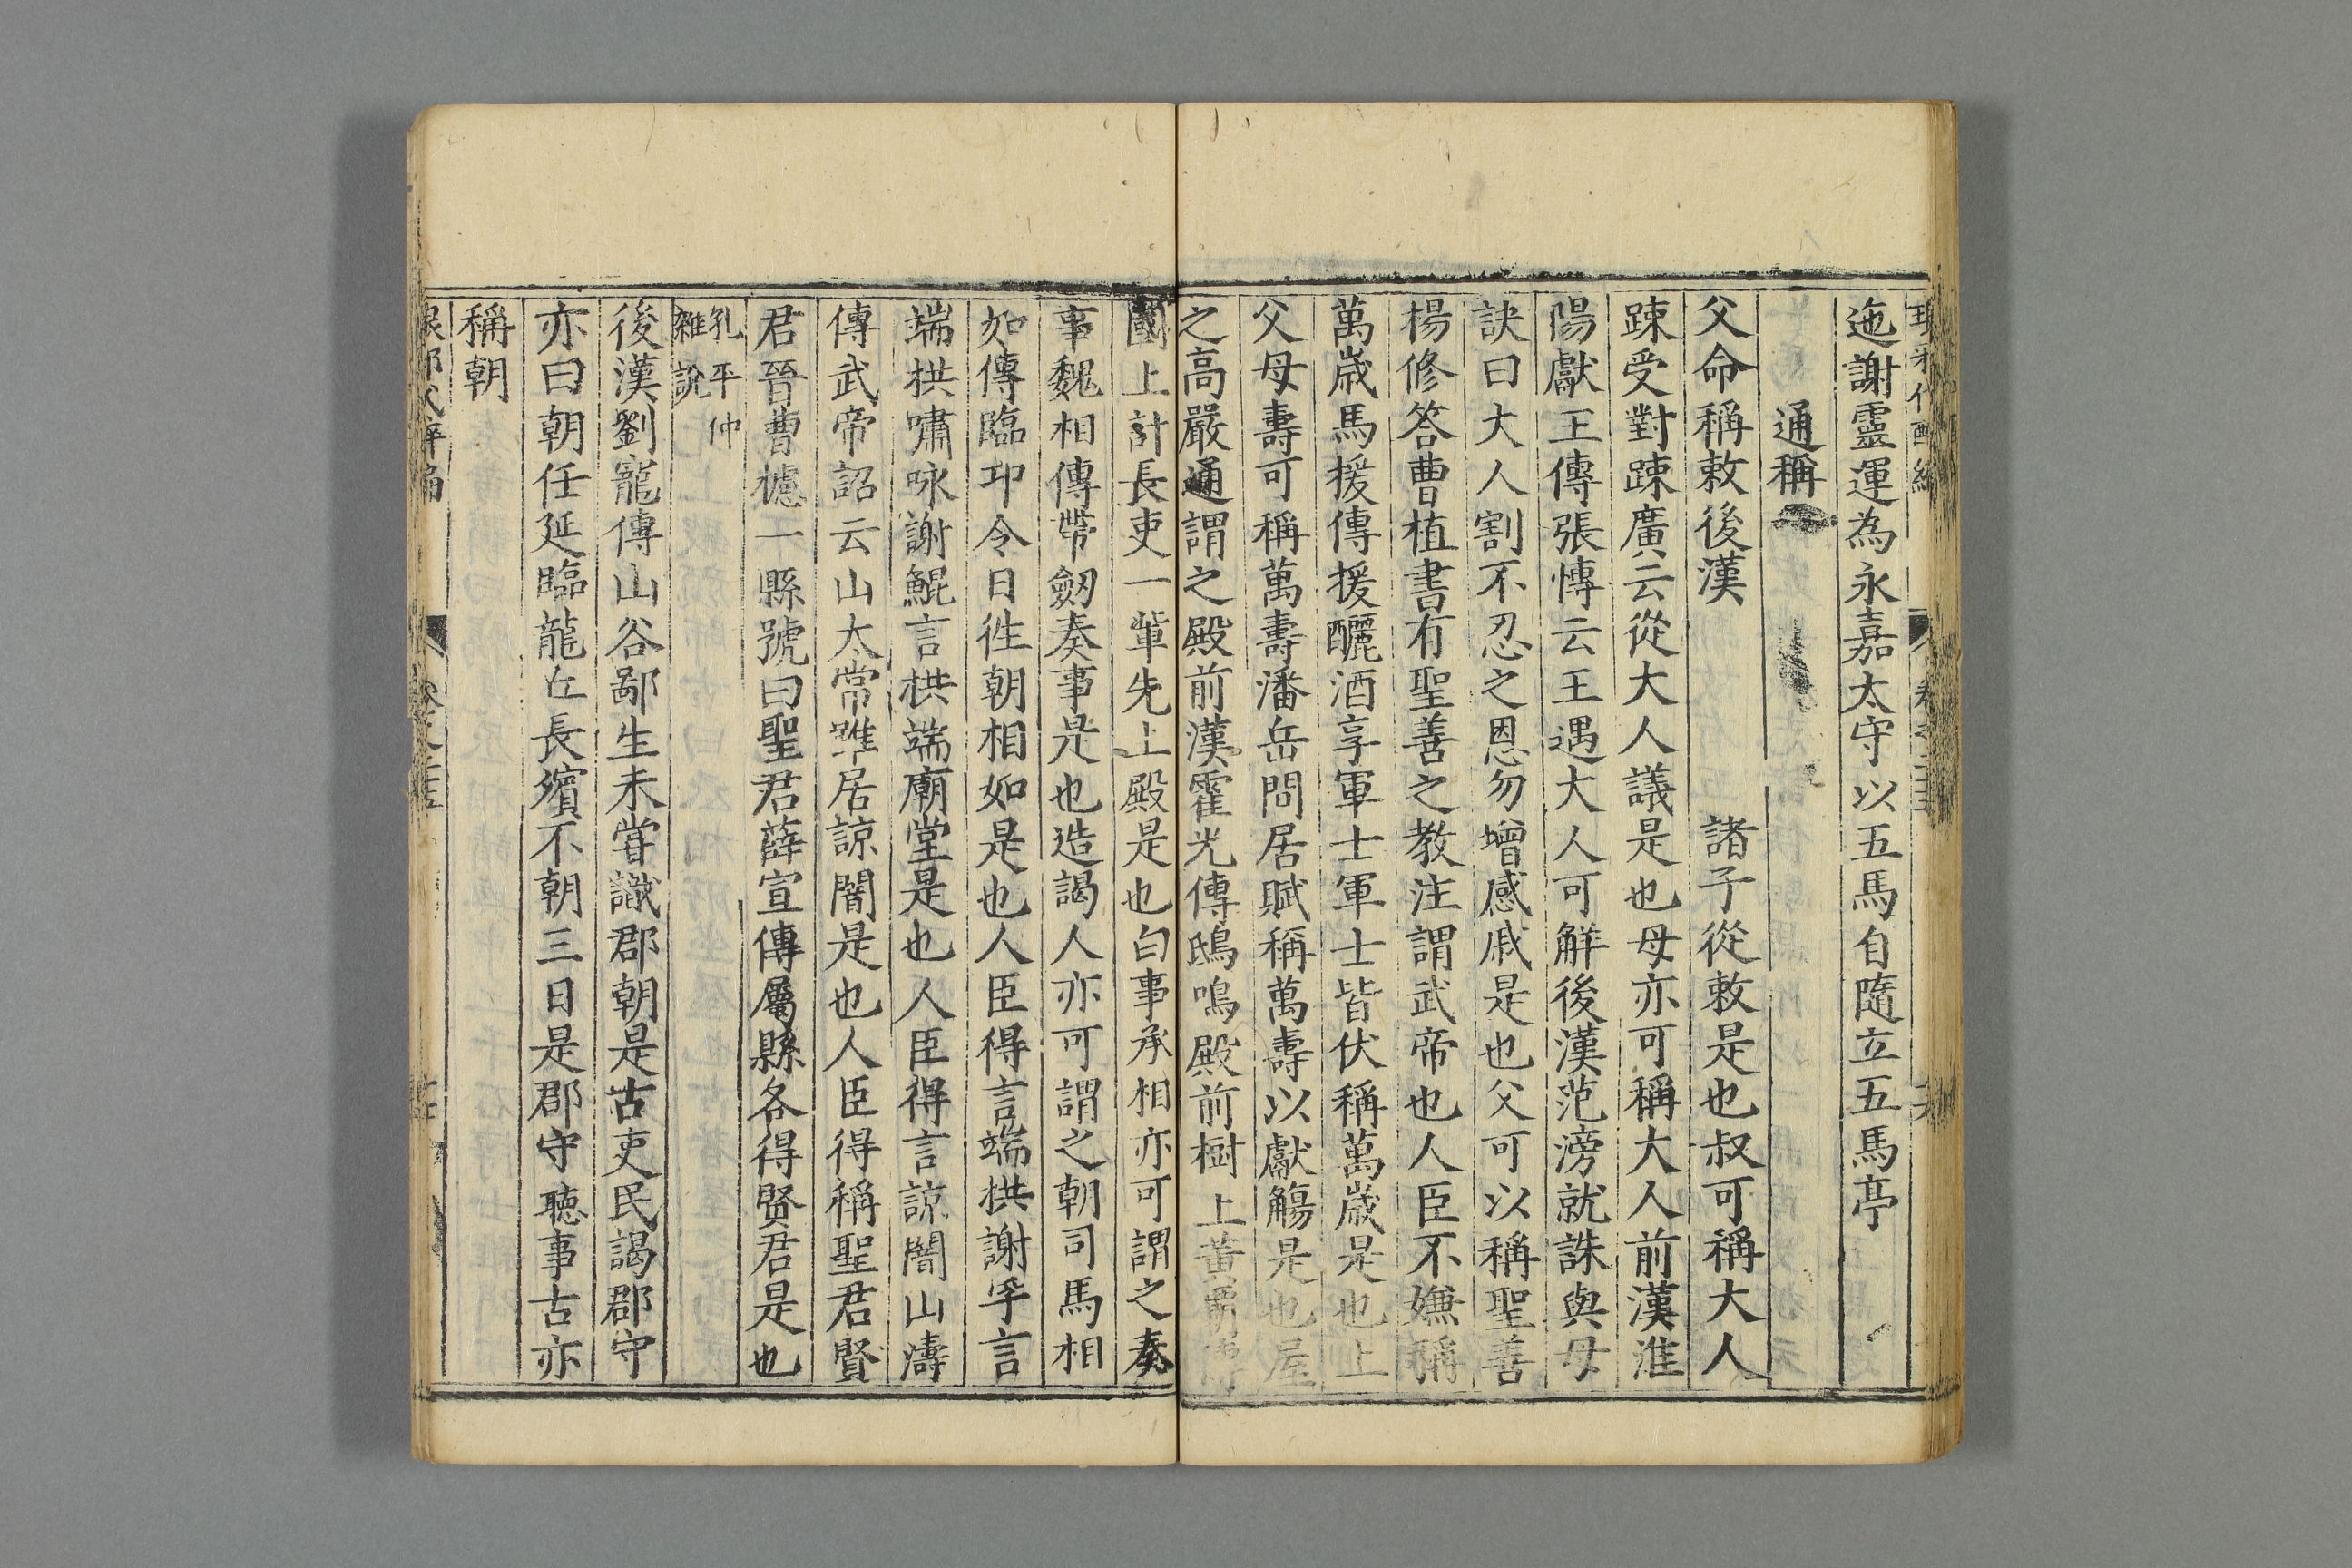 迤謝靈運為永嘉太守以五馬自隨立五馬亭
通稱
父命稱敕後漢諸子從敕是也叔可稱大人
踈受對踈廣云從大人議是也母亦可稱大人前漢淮
陽獻王傳張慱云王遇大人可觧後漢范滂就誅與母
訣曰大人割不忍之恩勿增感戚是也父可以稱聖善
楊修答曹植書有聖善之教注謂武帝也人臣不嫌稱
萬歲馬援傳援釃酒享軍士軍士皆伏稱萬歲是也上
父母壽可稱萬壽潘岳閒居賦稱萬壽以獻觴是也屋
之高嚴通謂之殿前漢霍光傳鴟鳴殿前樹上黃霸傳
國上計長吏一輩先上殿是也白事承相亦可謂之奏
事魏相傳帶劒奏事是也造謁人亦可謂之朝司馬相
如傳臨卭令日徃朝相如是也人臣得言端拱謝孚言
端拱嘯咏謝鯤言拱端廟堂是也人臣得言諒闇山濤
傳武帝詔云山太常雖居諒闇是也人臣得稱聖君賢
君晉曹攄一縣號曰聖君薛宣傳屬縣各得賢君是也
孔平仲
雜說
後漢劉寵傳山谷鄙生未嘗識郡朝是古吏民謁郡守
亦曰朝任延臨龍丘長殯不朝三日是郡守聽事古亦
稱朝